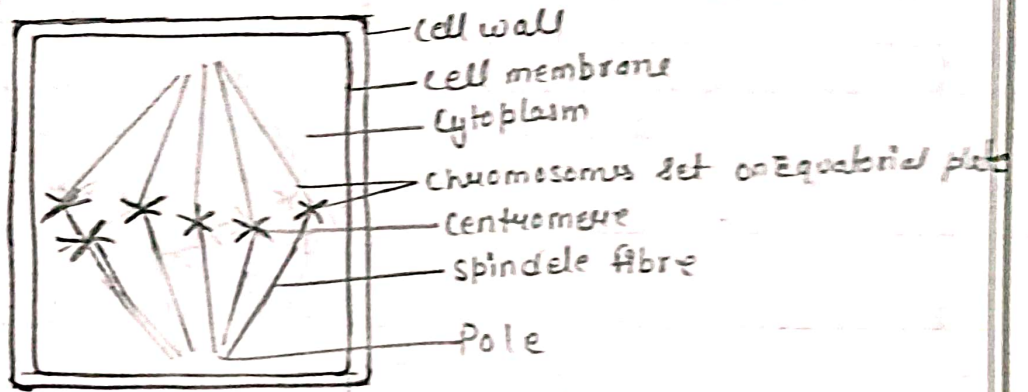 Cell wall
Cell membrane
Cytoplasm
Chromosomes set on Equatorial plate
Centromere
Spindele fibre
Pole